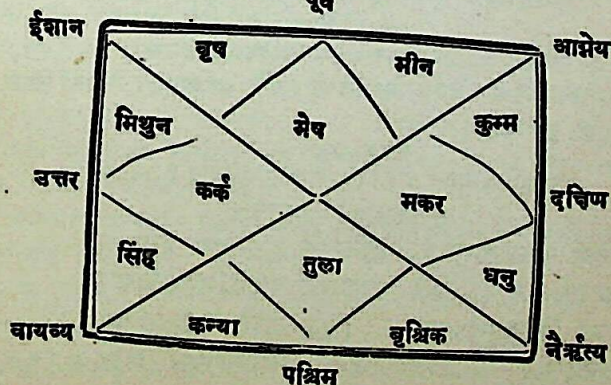 पूर्व
ईशान
वृष
मीन
आग्नेय
मिथुन
मेष
कुम्भ
उत्तर
कर्क
मकर
दक्षिण
सिंह
तुला
धनु
वायव्य
कन्या
वृश्चिक
नैर्ऋत्य
पश्चिम